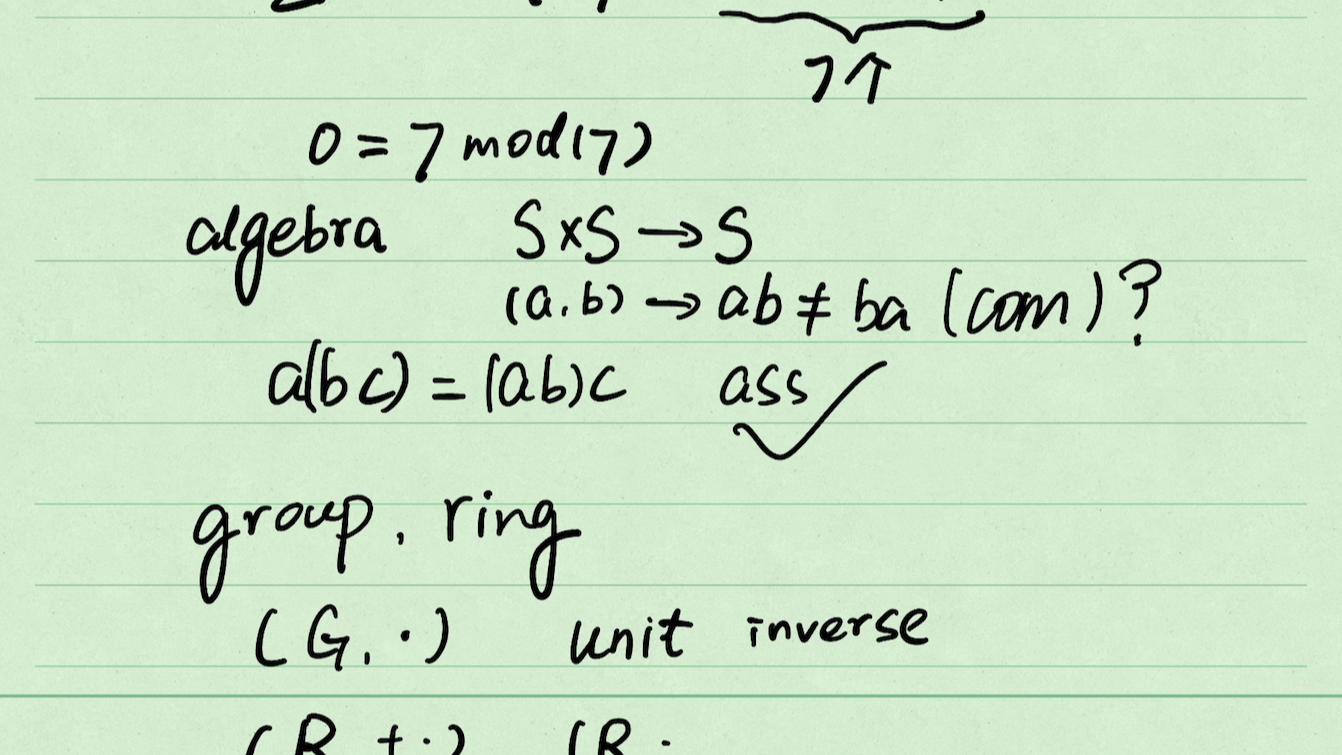 7个
0 = 7 mod(7)
algebra S×S → S
(a.b) → ab ≠ ba (com)?
a(bc) = (ab)c ass ✓
group, ring
(G, ·) unit inverse
(R + ·) (R ·